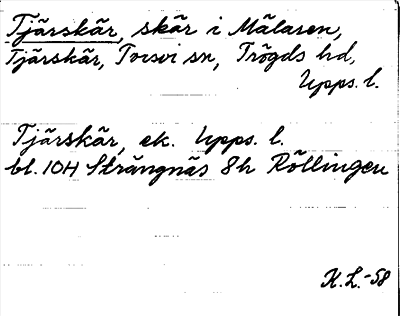 Tjärskär, skär i Mälaren,
Tjärskär, Torsvi sn, Trögds hd,
Upps. l.
Tjärskär, ek. Upps. l.
bl. 10H Strängnäs 8h Röllingen
K.L.-58